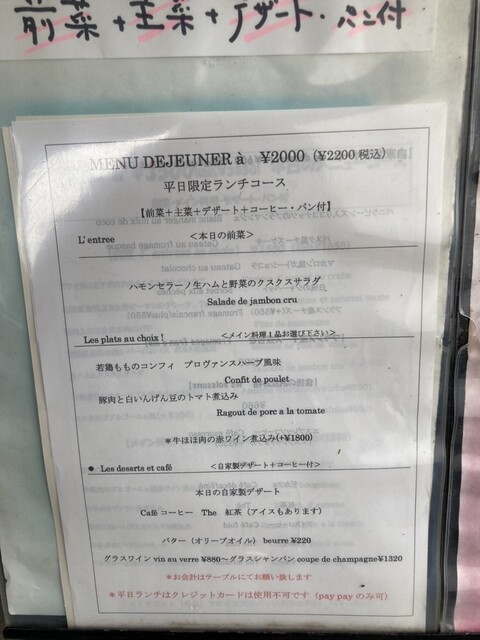 前菜+主菜+デザート・パン付
MENU DEJEUNER à ¥2000 (¥2200 税込)
平日限定ランチコース
【前菜+主菜+デザート+コーヒー・パン付】
L'entree <本日の前菜>
ハモンセラーノ生ハムと野菜のクスクスサラダ
Salade de jambon cru
Les plats au choix ! <メイン料理1品お選び下さい>
若鶏もものコンフィ プロヴァンスハーブ風味
Confit de poulet
豚肉と白いんげん豆のトマト煮込み
Ragout de porc a la tomate
*牛ほほ肉の赤ワイン煮込み(+¥1800)
● Les desarts et café <自家製デザート+コーヒー付>
本日の自家製デザート
Café コーヒー The 紅茶 (アイスもあります)
バター (オリーブオイル) beurre ¥220
グラスワイン vin au verre ¥880～グラスシャンパン coupe de champagne¥1320
*お会計はテーブルにてお願い致します
*平日ランチはクレジットカードは使用不可です (pay pay のみ可)